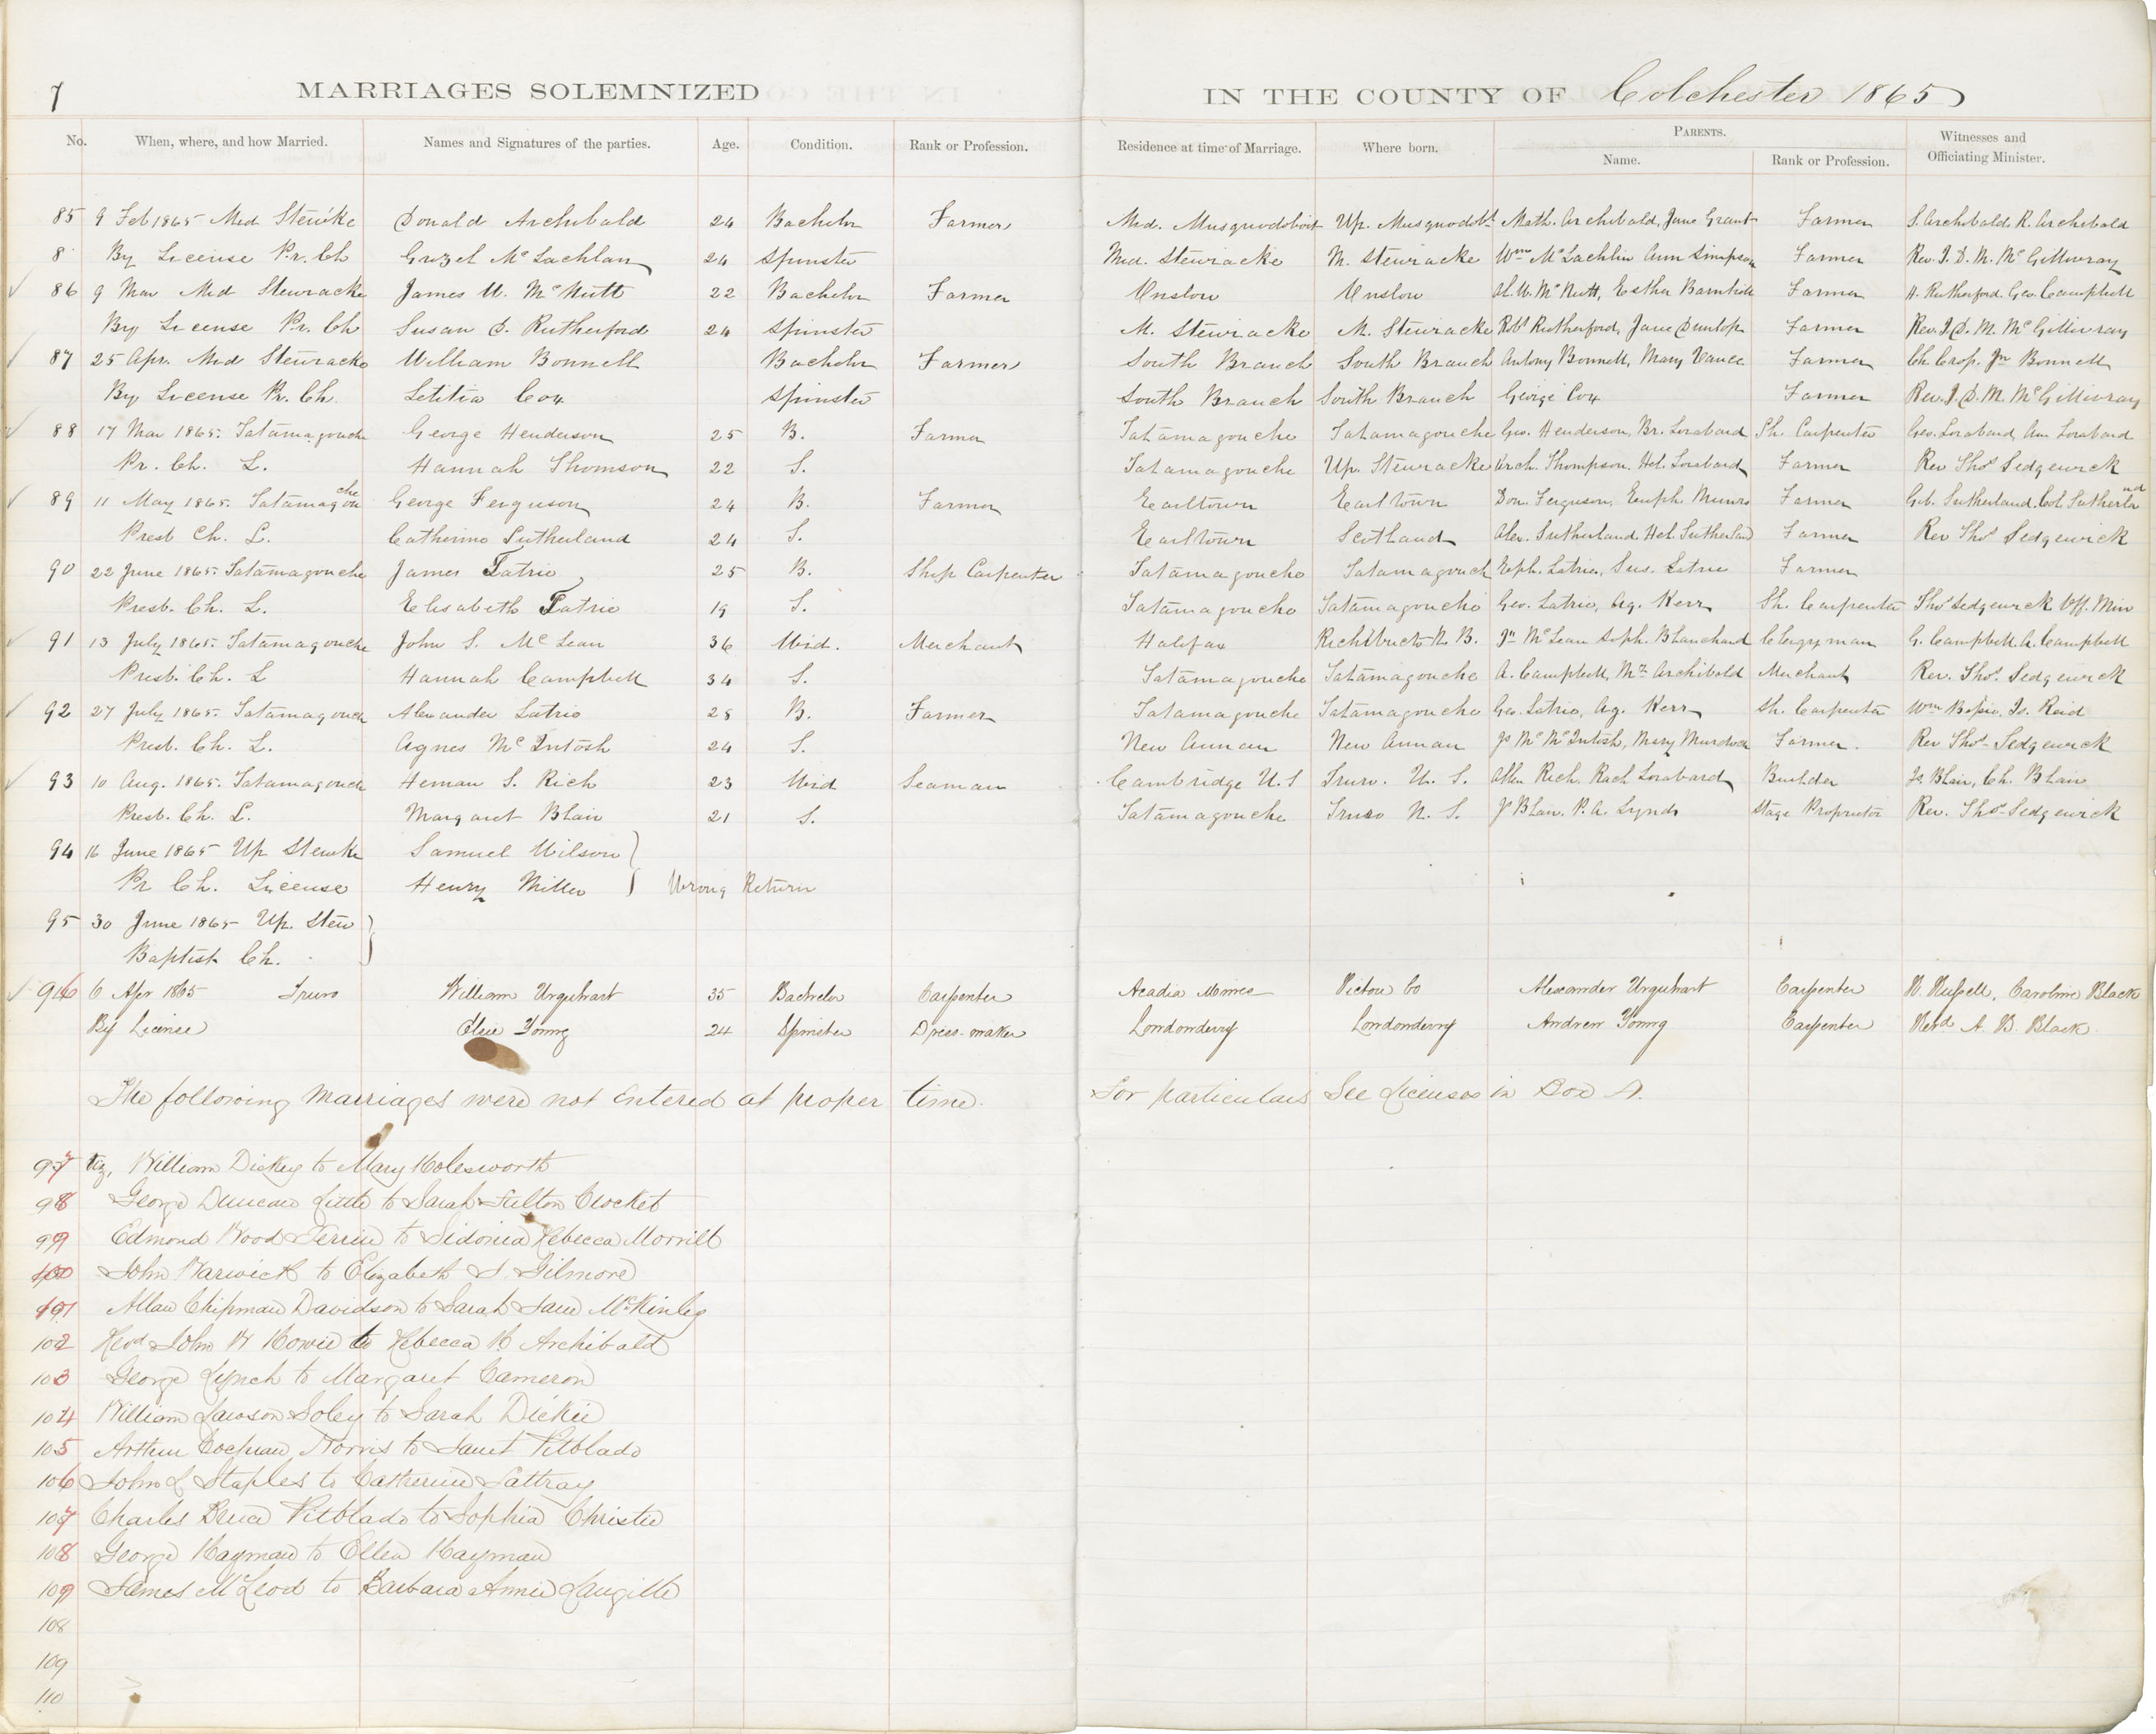 7
MARRIAGES SOLEMNIZED IN THE COUNTY OF Colchester 1865
No. When, where, and how Married. Names and Signatures of the parties. Age. Condition. Rank or Profession. Residence at time of Marriage. Where born. PARENTS. Name. Rank or Profession. Witnesses and Officiating Minister.
85 9 Feb 1865 Med Stewke Donald Archibald 24 Bachelor Farmer Mid. Musquodoboit Up. Musquodobt Math. Archibald, Jane Grant Farmer S. Archibald, R. Archibald
8 By License Pr. Ch Grizel McLachlan 24 Spinster Med. Stewiacke M. Stewiacke Wm McLachlin Ann Simpson Farmer Rev. J. D. M. McGillivray
86 9 Mar Med Stewiacke James U. McNutt 22 Bachelor Farmer Onslow Onslow McNutt, Esther Barnhill Farmer H. Rutherford. Geo. Campbell
By License Pr. Ch Susan D. Rutherford 24 Spinster M. Stewiacke M. Stewiacke Robt Rutherford, Jane Dunlop Farmer Rev. J. D. M. McGillivray
87 25 Apr. Med Stewiacke William Bonnell Bachelor Farmer South Branch South Branch Antony Bonnell, Mary Vance Farmer Ch. Crop. Jn Bonnell
By License Pr. Ch. Letitia Cox Spinster South Branch South Branch George Cox Farmer Rev. J. D. M. McGillivray
88 17 Mar 1865. Tatamagouche George Henderson 25 B. Farmer Tatamagouche Tatamagouche Geo. Henderson, Br. Lombard Sh. Carpenter Geo. Lombard, Ann Lombard
Pr. Ch. L. Hannah Thomson 22 S. Tatamagouche Up. Stewiacke Arch. Thompson. Hel. Lombard Farmer Rev Thos Sedgewick
89 11 May 1865. Tatamagouche George Ferguson 24 B. Farmer Earltown Earltown Don. Ferguson, Euph. Munro Farmer Geb. Sutherland. Col. Sutherland
Presb Ch. L. Catherine Sutherland 24 S. Earltown Scotland Alex. Sutherland. Hel. Sutherland Farmer Rev Thos Sedgewick
90 22 June 1865. Tatamagouche James Tatrie 25 B. Ship Carpenter Tatamagouche Tatamagouch Eph. Latrie, Sus. Latrie Farmer
Presb. Ch. L. Elisabeth Tatrie 19 S. Tatamagouche Tatamagouche Geo. Latrie, Ag. Kerr Sh. Carpenter Thos Sedgewick Off. Min
91 13 July 1865. Tatamagouche John S. McLean 36 Wid. Merchant Halifax Richibucto N. B. Jn McLean Soph. Blanchard Clergyman G. Campbell A. Campbell
Presb. Ch. L Hannah Campbell 34 S. Tatamagouche Tatamagouche A. Campbell, Archibald Merchant Rev. Thos. Sedgewick
92 27 July 1865. Tatamagouch Alexander Latrie 28 B. Farmer Tatamagouche Tatamagouche Geo. Latrie, Ag. Kerr Sh. Carpenter Wm Js. Reid
Presb. Ch. L. Agnes McIntosh 24 S. New Annan New Annan McIntosh, Mary Murdock Farmer. Rev Thos Sedgewick
93 10 Aug. 1865. Tatamagouch Heman S. Rich 23 Wid Seaman Cambridge U. S Truro. U. S. Allen Rich. Rach Lombard Builder Js Blair, Ch. Blair
Presb. Ch. L. Margaret Blair 21 S. Tatamagouche Truro N. S. Js Blair. P. A. Lynds Stage Proprietor Rev. Thos Sedgewick
94 16 June 1865 Up Stewke Samuel Wilson
Pr Ch. License Henry Miller Wrong Return
95 30 June 1865 Up. Stew
Baptist Ch.
96 6 Apr 1865 Truro William Urquhart 35 Bachelor Carpenter Acadia Mines Pictou Co Alexander Urquhart Carpenter Russell, Caroline Black
By License Young 24 Spinster Dress-maker Londonderry Londonderry Andrew Young Carpenter Revd A. B. Black
The following Marriages were not Entered at proper time. For particulars See Licenses in Box A.
97 viz, William Dickey to Mary Holesworth
98 George Duncan Little to Sarah Fulton Crocket
99 Edmond Wood Perrin to Sidonia Rebecca Morrill
100 John Warwick to Elizabeth S. Gilmore
101 Allan Chipman Davidson to Sarah Jane McKinley
102 Revd John W Howie to Rebecca H Archibald
103 George Lynch to Margaret Cameron
104 William Lawson Soley to Sarah Dickie
105 Arthur Cochran Norris to Janet Pitblado
106 John L Staples to Catherine Lattray
107 Charles Bruce Pitblado to Sophia Christie
108 George Hayman to Ellen Hayman
109 James McLeod to Barbara Annie Langille
108
109
110